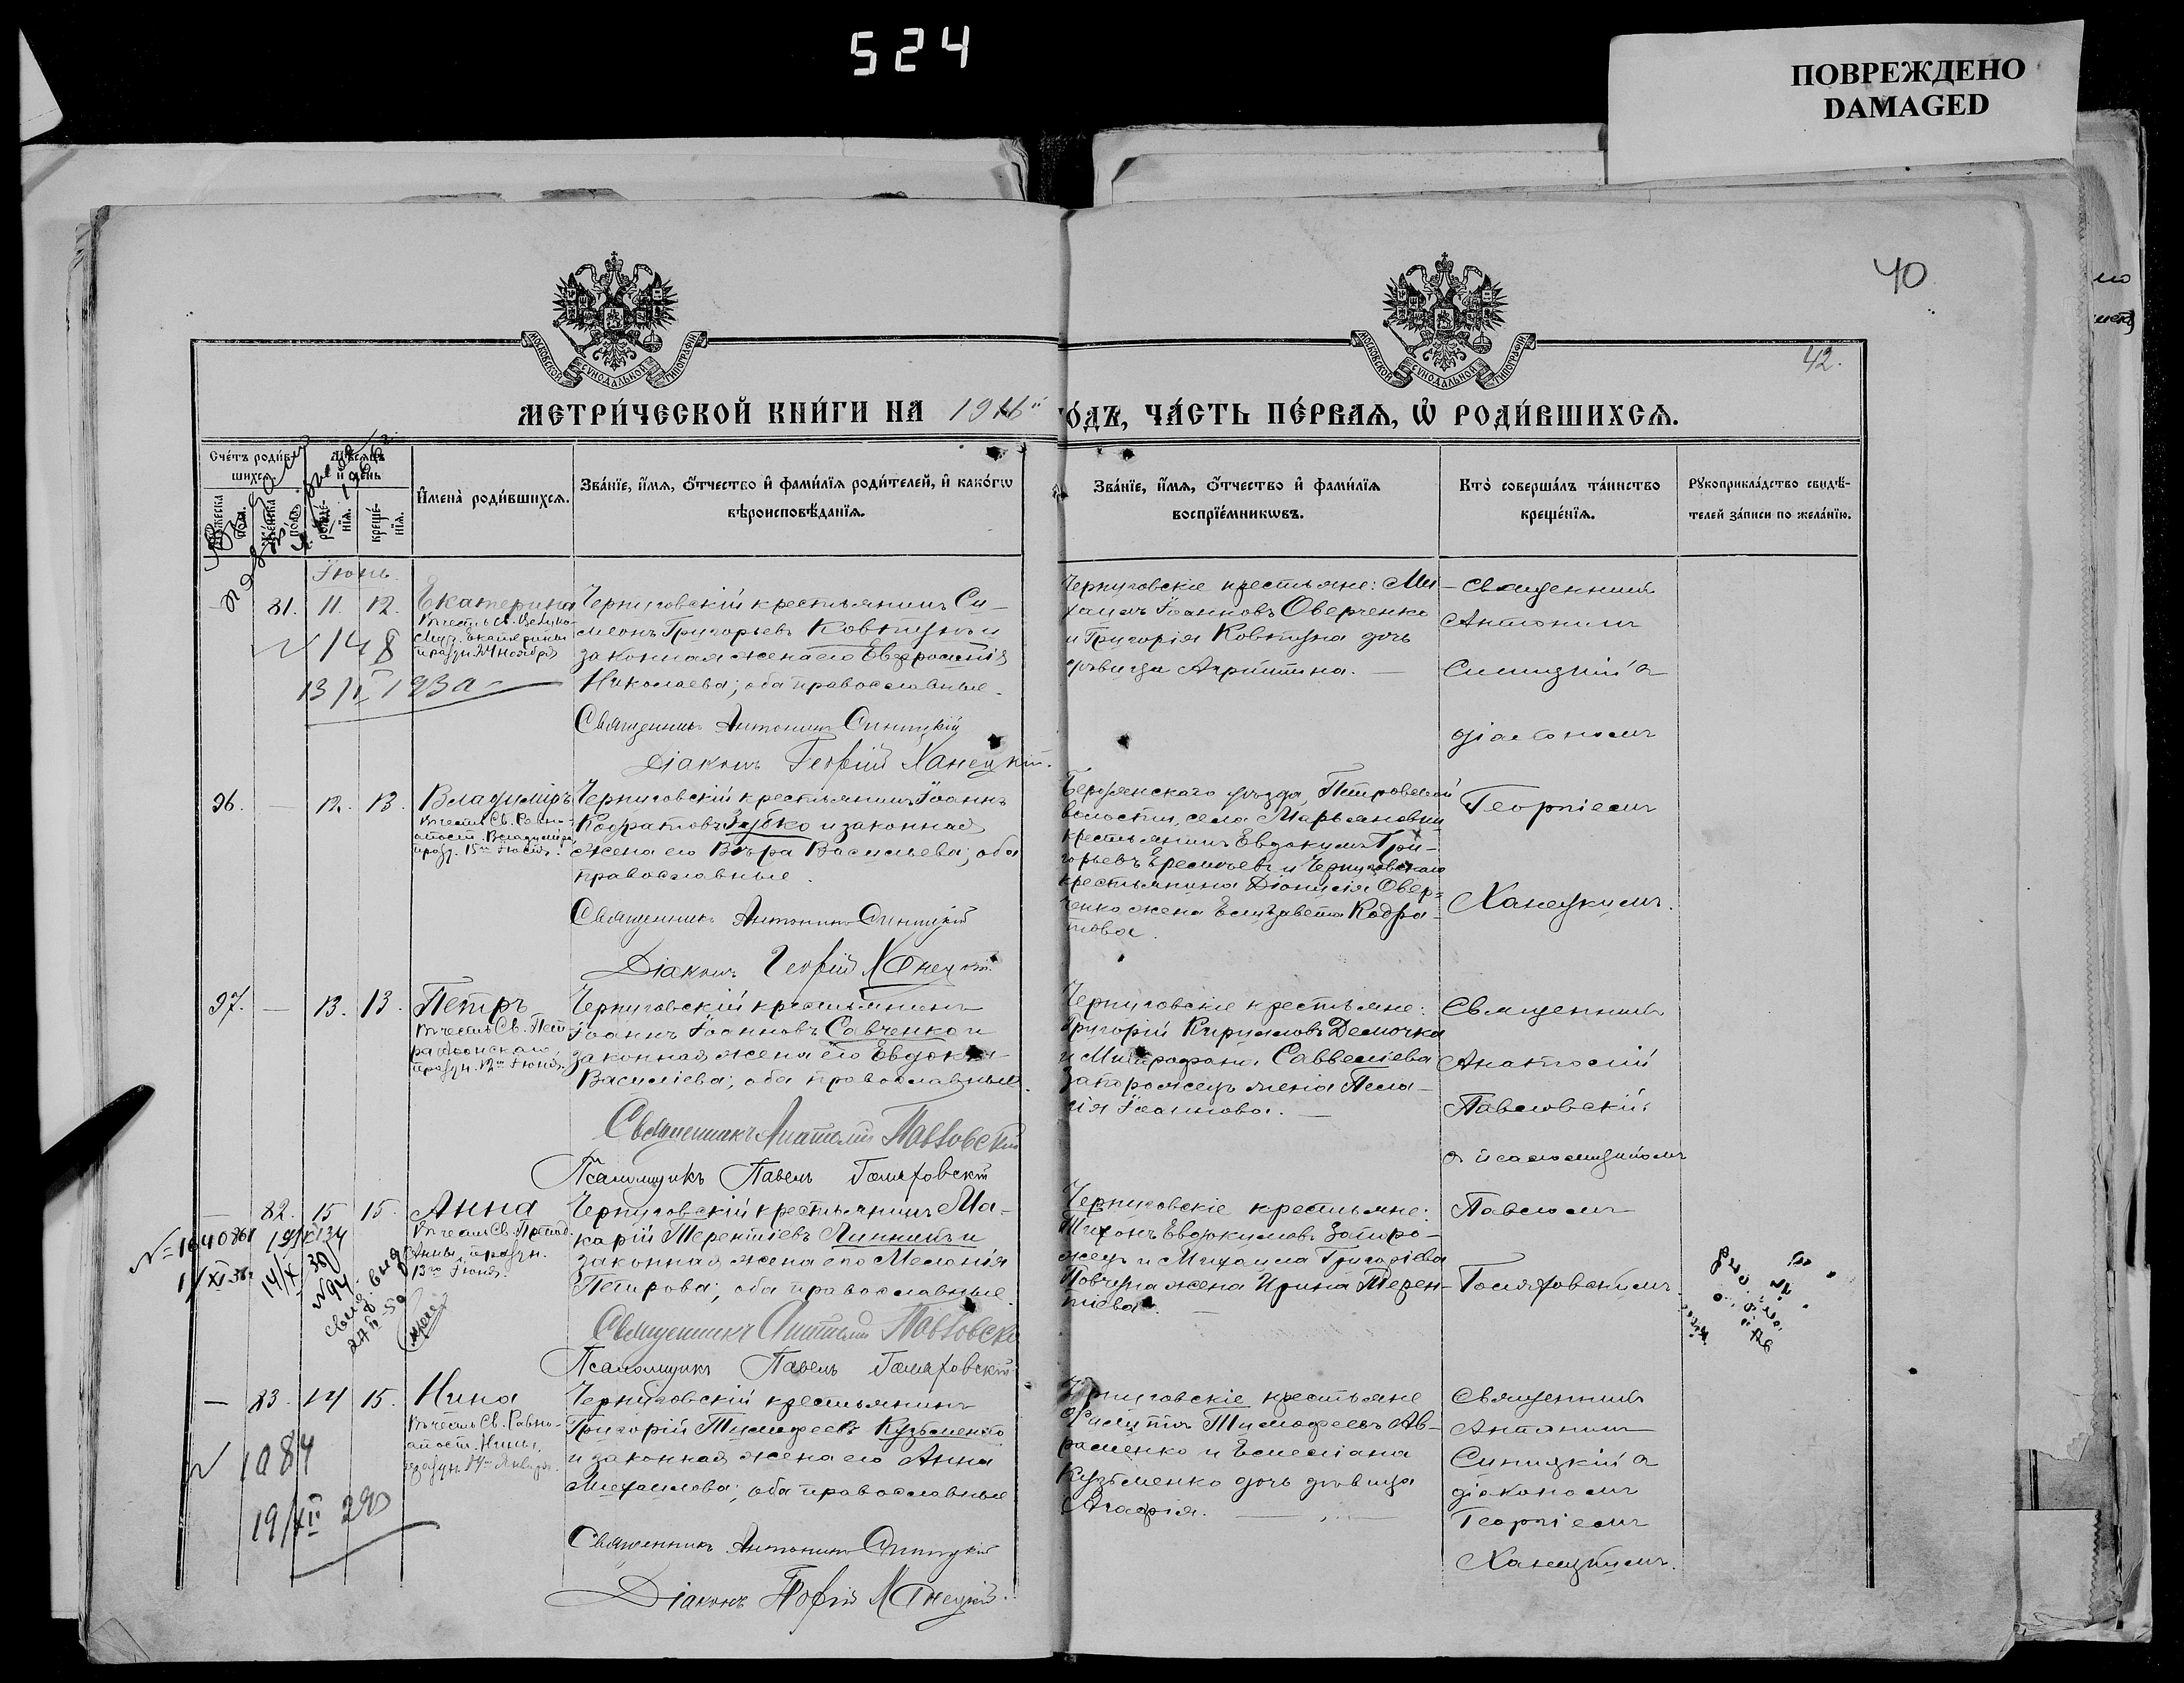 524
ПОВРЕЖДЕНО
DAMAGED
40
42.
МОСКОВСКОЙ СѴНОДАЛЬНОЙ ТИПОГРАФІИ
МОСКОВСКОЙ СѴНОДАЛЬНОЙ ТИПОГРАФІИ
МЕТРИ́ЧЕСКОЙ КНИ́ГИ НА 1916й
ОДЪ, ЧА́СТЬ ПЕ́РВАЯ, Ѡ҆ РОДИ́ВШИХСЯ.
Сче́тъ роди́в-
шихся.
Мѣсяцъ
и день
Мужеска
пола.
Женска
пола.
рожде́-
нїя.
креще́-
нїя.
И҆мена̀ роди́вшихся.
Зва́нїе, и҆́мя, ѻ҆́тчество и҆ фами́лїя роди́телей, и҆ како́гѡ
вѣроисповѣ́данїя.
Зва́нїе, и҆́мя, ѻ҆́тчество и҆ фами́лїя
воспрїе́мникѡвъ.
Кто̀ соверша́лъ та́инство
креще́нїя.
Рꙋкоприкла́дство свидѣ́-
телей за́писи по жела́нїю.
Іюнь.
— 81. 11. 12. Екатерина
Въ честь Св. Велико-
муч. Екатерины
празд. 24 ноября
№ 148
Черниговскій крестьянинъ Си-
меонъ Григорьевъ Ковтунъ и
законная жена его Евфросинія
Николаева; оба православные.
Священникъ Антонинъ Синицкій
Діаконъ Георгій Ханецкій.
Черниговскіе крестьяне: Ми-
хаилъ Іоанновъ Оверченко
и Григорія Ковтуна дочь
дѣвица Акриппина. —
Священникъ
Антонинъ
Синицкій съ
діакономъ
96. — 12. 13. Владиміръ
Въ честь Св. Равно-
апост. Владиміра,
празд. 15го Іюля.
Черниговскій крестьянинъ Іоаннъ
Кодратовъ Зубко и законная
жена его Вѣра Васильева; оба
православные.
Священникъ Антонинъ Синицкій
Діаконъ Георгій Ханецкій.
Бердянскаго уѣзда, Петровской
волости, села Марьяновки
крестьянинъ Евдокимъ Гри-
горьевъ Еремѣевъ и Черниговскаго
крестьянина Діонисія Овер-
ченко жена Елизавета Кодра-
това.
Георгіемъ
Ханецкимъ.
97. — 13. 13. Петръ
Въ честь Св. Пет-
ра Аѳонскаго,
праздн. 12го Іюня.
Черниговскій крестьянинъ
Іоаннъ Іоанновъ Савченко и
законная жена его Евдокія
Василіева; оба православные.
Священникъ Анатолій Павловскій
Псаломщикъ Павелъ Голяховскій
Черниговскіе крестьяне:
Григорій Кирилловъ Демочка
и Митрофана Саввеліева
Запорожецъ жена Пела-
гія Іоаннова. —
Священникъ
Анатолій
Павловскій
съ псаломщикомъ
— 82. 15 15. Анна
Въ честь Св. Препод.
Анны, праздн.
13го Іюня.
Черниговскій крестьянинъ Ма-
карій Терентіевъ Линникъ и
законная жена его Меланія
Петрова; оба православные.
Священникъ Анатолій Павловскій
Псаломщикъ Павелъ Голяховскій
Черниговскіе крестьяне:
Тихонъ Евдокимовъ Запоро-
жецъ и Михаила Григоріева
Ковтуна жена Ирина Терен-
тіева. —
Павломъ
Голяховскимъ.
— 83. 14 15. Нина
Въ честь Св. Равно-
апост. Нины,
праздн. 14го Января.
№ 1084
19/XII 29
Черниговскій крестьянинъ
Григорій Тимофеевъ Кузьменко
и законная жена его Анна
Михаилова; оба православные
Священникъ Антонинъ Синицкій
Діаконъ Георгій Ханецкій.
Черниговскіе крестьяне
Филиппъ Тимофеевъ Ав-
раменко и Емеліана
Кузьменко дочь дѣвица
Агафія. —
Священникъ
Антонинъ
Синицкій съ
діакономъ
Георгіемъ
Ханецкимъ.